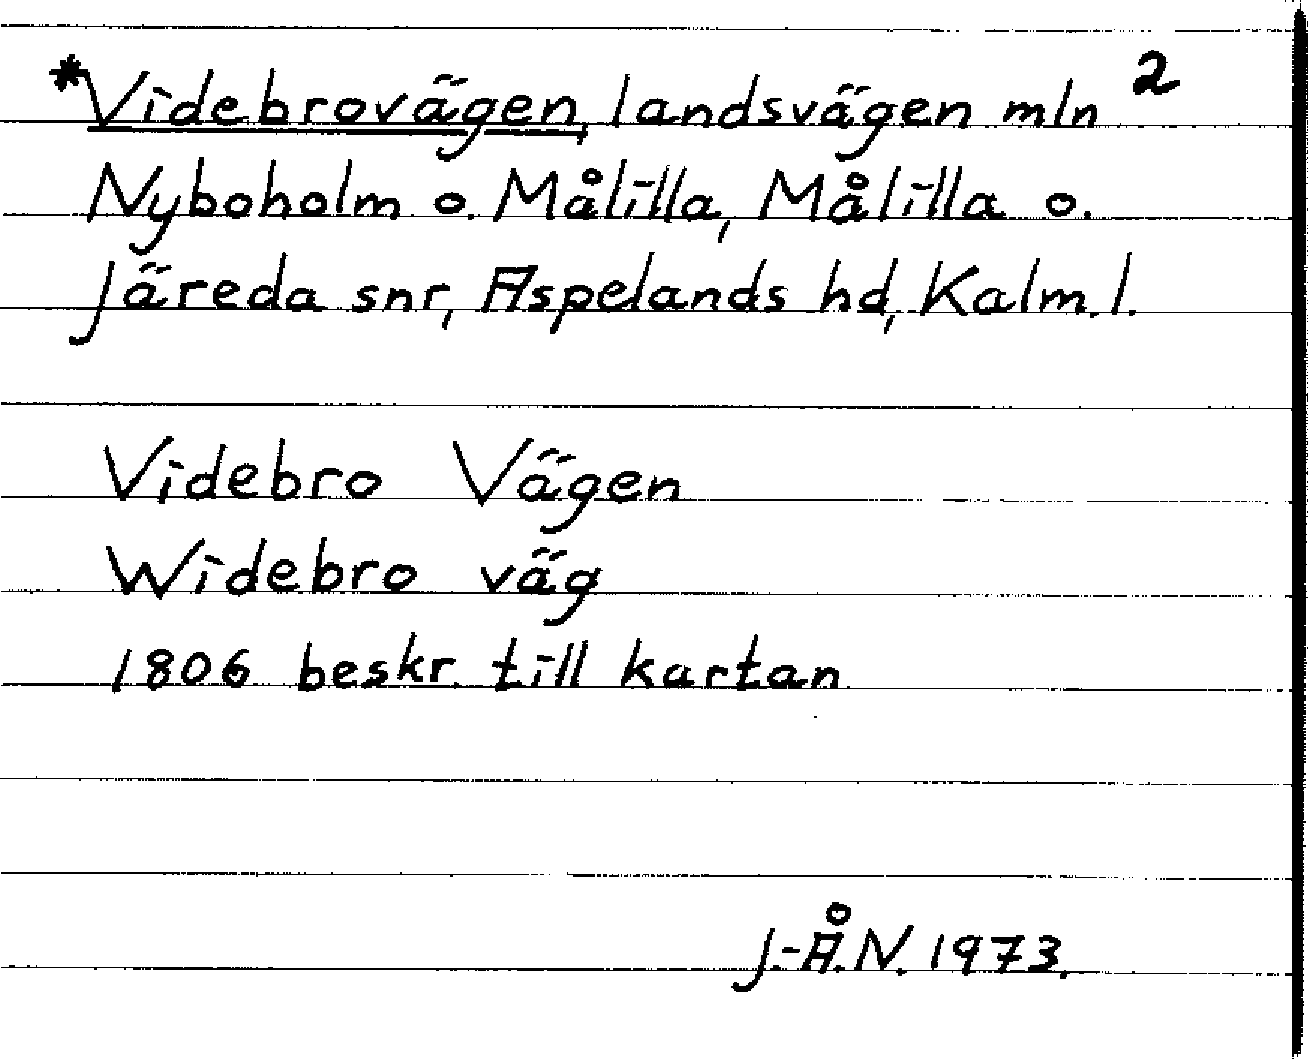 *Videbrovägen, landsvägen mln 2
Nyboholm o. Målilla, Målilla o.
Järeda snr, Aspelands hd, Kalm. l.
Videbro Vägen
Widebro väg
1806 beskr. till kartan
J.-Å.N. 1973.